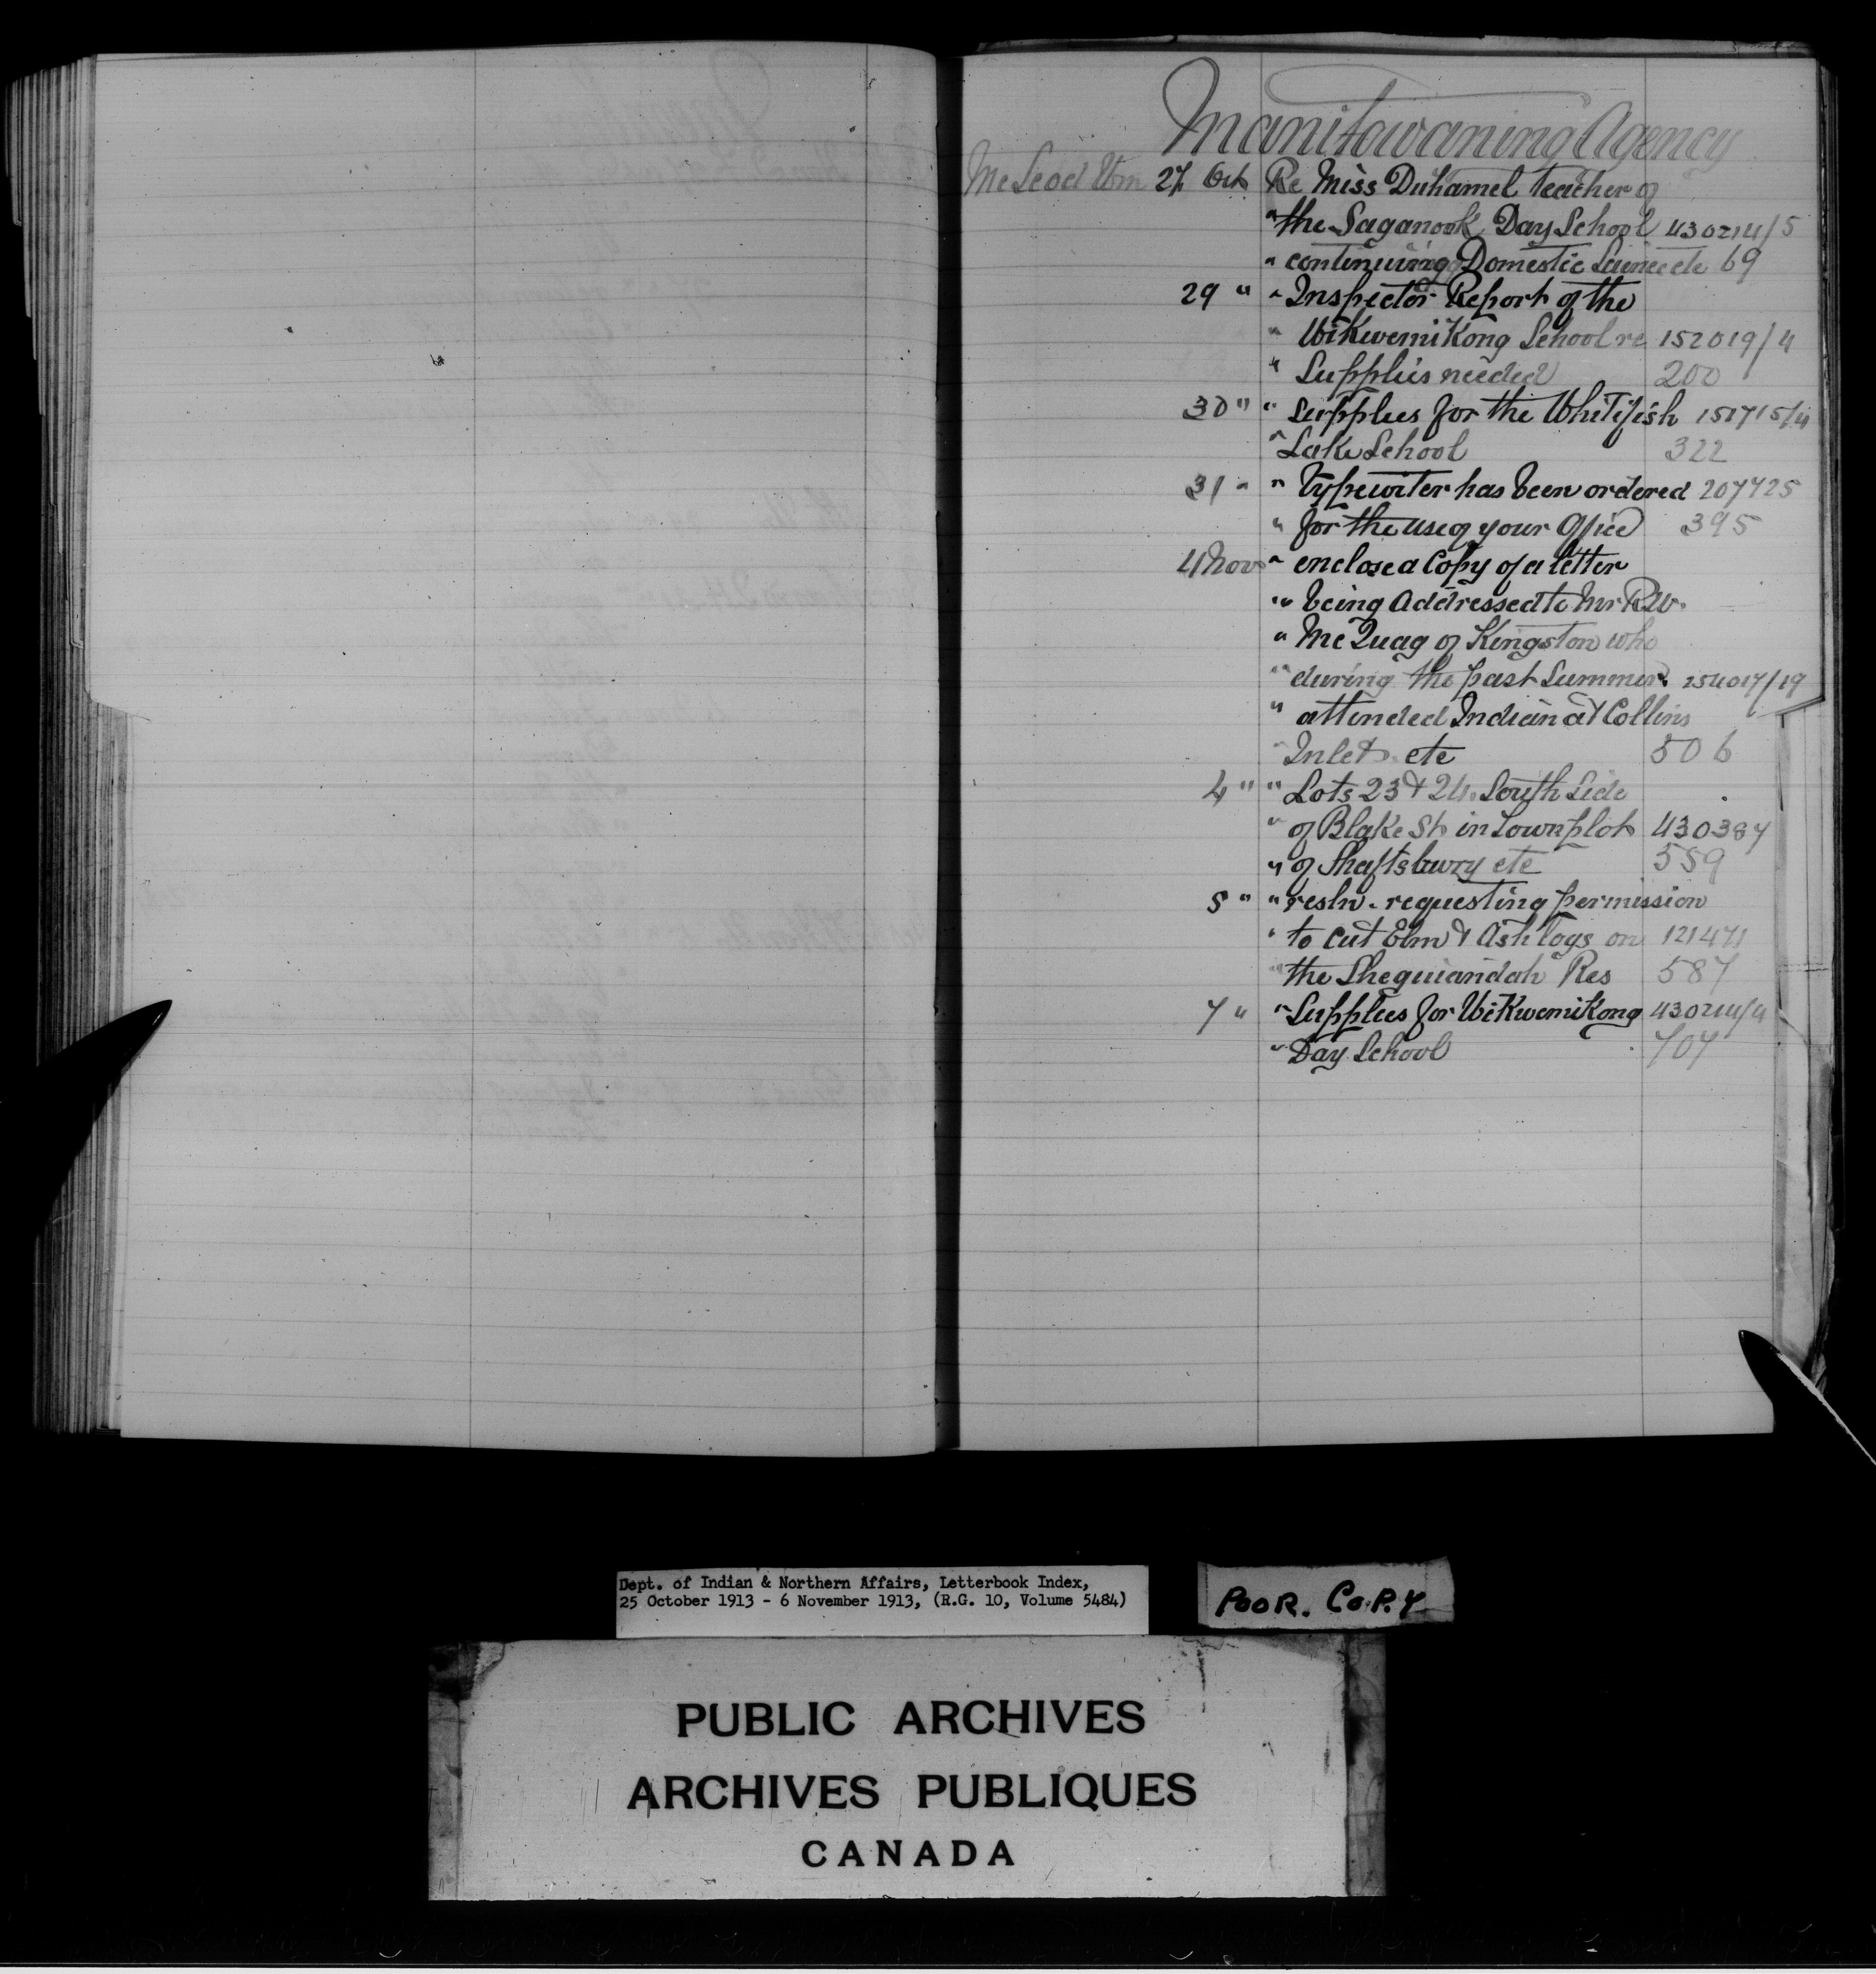 Manitowaning Agency
McLeod Wm 27 Oct Re Miss Duhamel teacher of
" the Saganook Day School 430214/5
" continuing Domestic Science etc 69
29 " " Inspector Report of the
" WiKwemiKong School re 152019/4
" Supplies needed 200
30 " " Supplies for the Whitefish 151715/4
" Lake School 322
31 " " Typewriter has been ordered 207725
" for the use of your Office 395
4 Nov " enclose a Copy of a letter
" being Addressed to Mr R.W.
" McQuag of Kingston who
" during the past Summer 254017/19
" attended Indian at Collins
" Inlet etc 506
4 " " Lots 23 & 24. South Side
" of Blake St in Townplot 430387
" of Shaftsbury etc 559
5 " " resln. requesting permission
" to cut Elm & Ash logs on 121471
" the Sheguiandah Res 587
7 " " Supplies for WiKwemiKong 430214/4
" Day School 707
Dept. of Indian & Northern Affairs, Letterbook Index,
25 October 1913 - 6 November 1913, (R.G. 10, Volume 5484)
POOR. COPY
PUBLIC ARCHIVES
ARCHIVES PUBLIQUES
CANADA